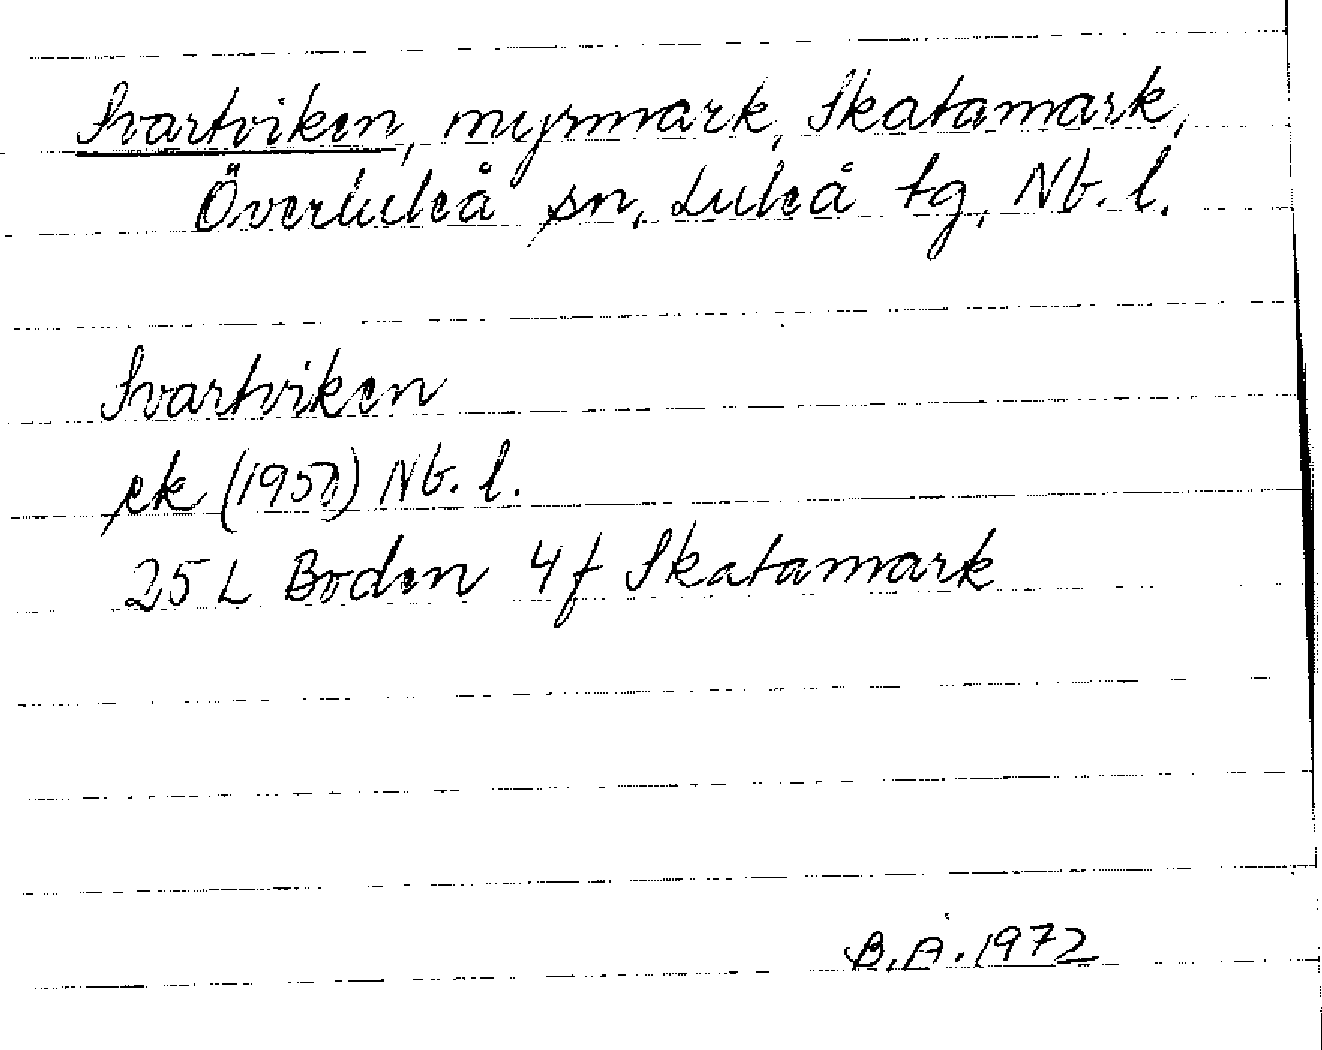 Svartviken, myrmark, Skatamark,
Överluleå sn, Luleå tg, Nb. l.
Svartviken
ek (1950) Nb. l.
25 L Boden 4f Skatamark
B.Å. 1972